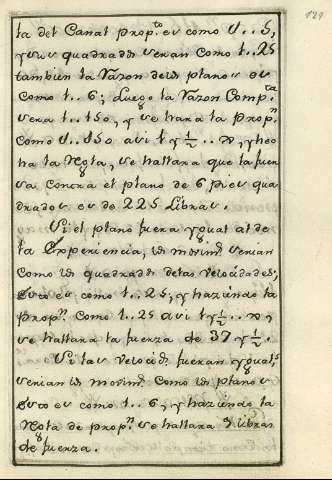 121
la del Canal prop.to es como 1..5,
y sus quadrados seran como 1..25
tambien la razon de los planos es
como 1..6; Luego la razon Comp.ta
sera 1..150, y se hara la prop.n
como 1..150 asi 1 y 1/2 .. x, y hecha
la Regla, se hallara que la fuerza
contra el plano de 6 pies quadrados
es de 225 Libras.
Si el plano fuera ygual al de
la Experiencia, los movim.s serian
como los quadrados de las Velocidades,
esto es como 1..25, y haziendo la
prop.n como 1..25 asi 1 y 1/2 .. x,
se hallara la fuerza de 37 y 1/2.
Si las Velocid.s fueran yguales
serian los movim.s Como los planos
esto es como 1..6, y haziendo la
Regla de prop.n se hallara 9 libras
de fuerza.